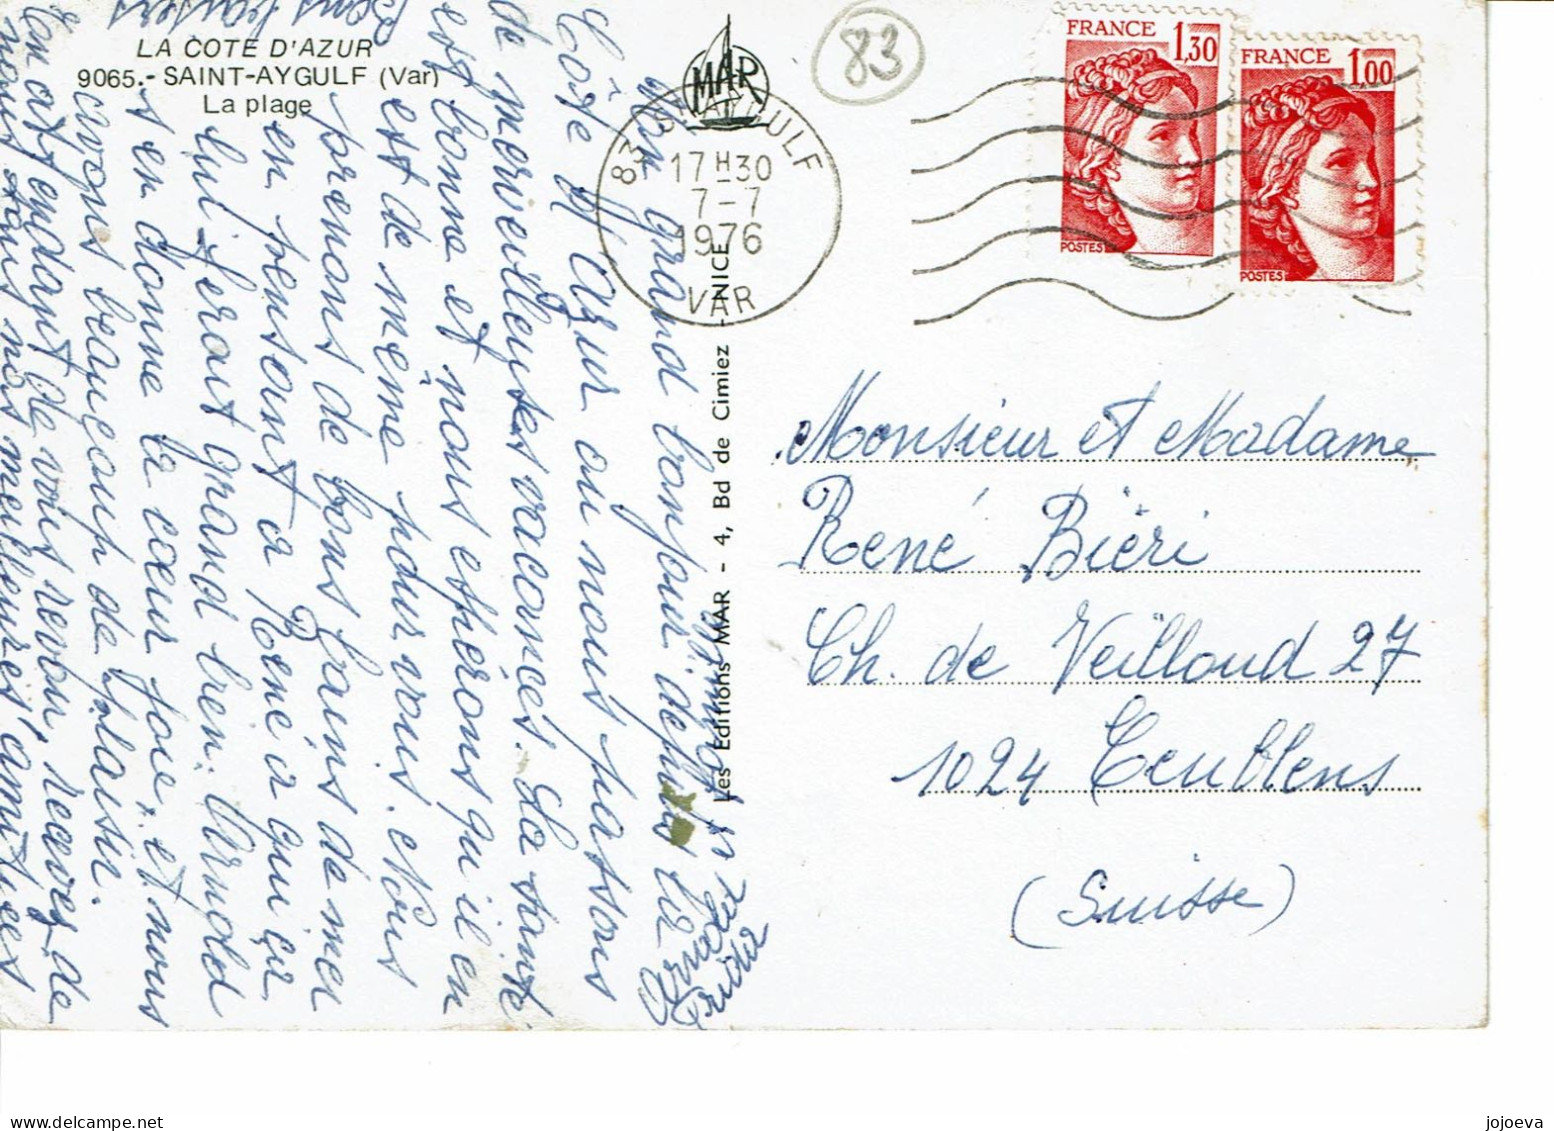 LA COTE D'AZUR
9065.- SAINT-AYGULF (Var)
La plage
MAR
83
83 ST AYGULF
17 H 30
7-7
1976
VAR
FRANCE 1,30
POSTES
FRANCE 1,00
POSTES
Les Editions MAR - 4, Bd de Cimiez - NICE
Un grand bonjour depuis la
Côte d'Azur où nous passons
de merveilleuses vacances. La santé
est bonne et nous espérons qu'il en
est de même pour vous. Nous
prenons de bons bains de mer
en pensant à René à qui ça
lui ferait grand bien. Arnold
s'en donne à cœur joie, et nous
avons beaucoup de plaisir.
En attendant de vous revoir, recevez de
nous tous nos meilleures amitiés
Bons baisers
Monsieur et Madame
René Biéri
Ch. de Veilloud 27
1024 Ecublens
(Suisse)
jojoeva